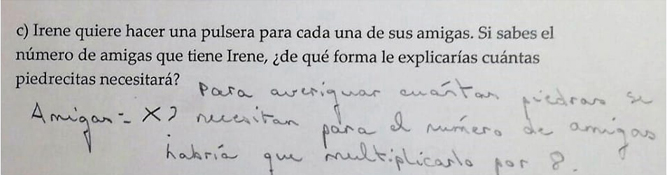 c) Irene quiere hacer una pulsera para cada una de sus amigas. Si sabes el
número de amigas que tiene Irene, ¿de qué forma le explicarías cuántas
piedrecitas necesitará?
Para averiguar cuántas piedras se
Amigas = X ? necesitan para el número de amigas
habría que multiplicarlo por 8.